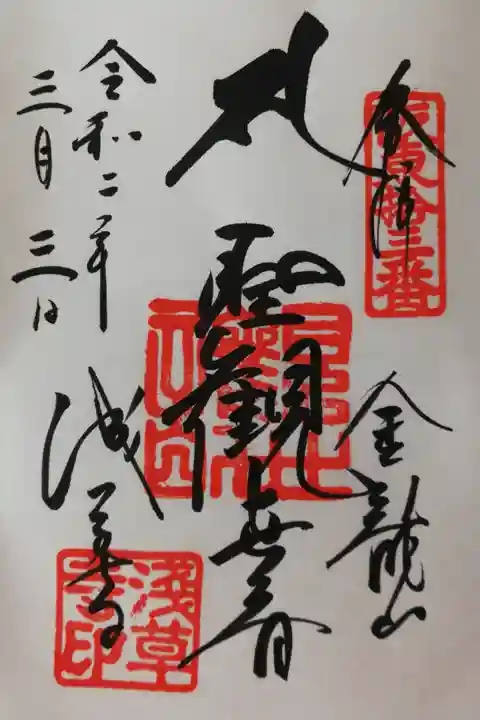 奉拝
坂東拾三番
金龍山
聖観世音
浅草寺
浅草寺印
令和二年
三月三日